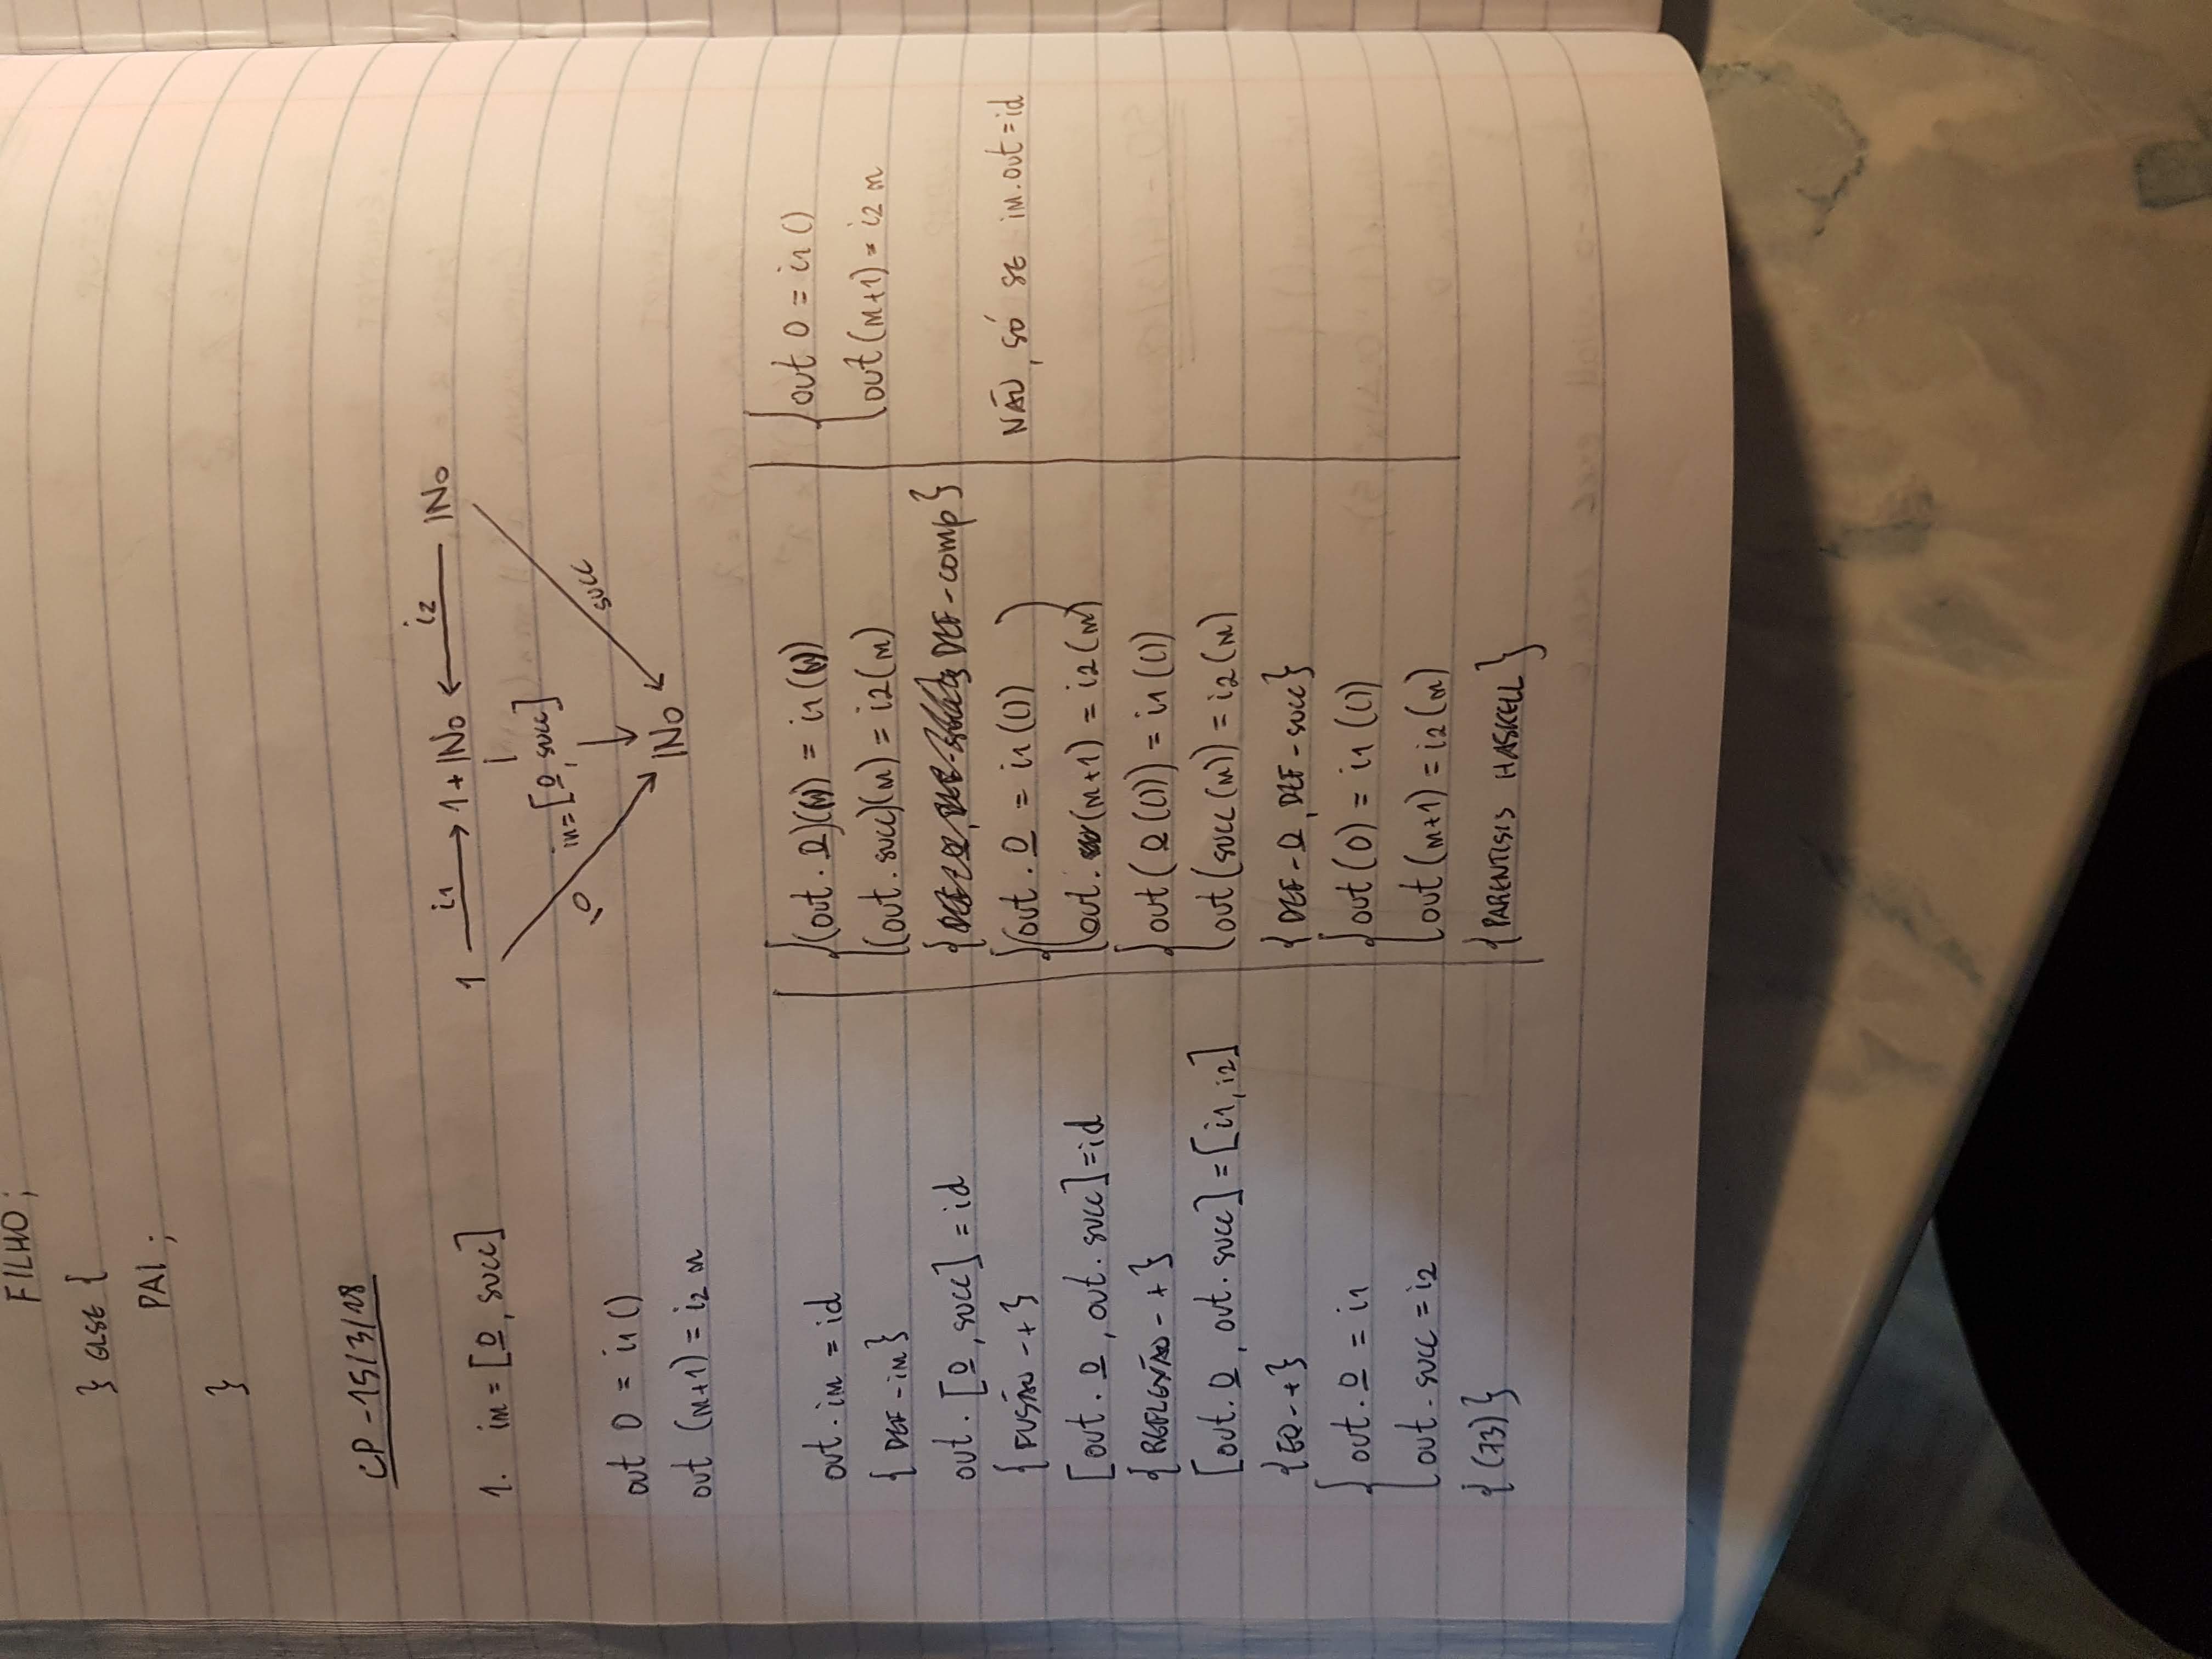 FILHO;
} ELSE {
PAI;
}
CP - 15/3/18
1. in = [0, succ]
1 i1 1 + IN0 i2 IN0
in = [0, succ]
0
succ
IN0
out 0 = i1 ()
out (n+1) = i2 n
out . in = id
{ DEF - in }
out . [0, succ] = id
{ FUSÃO - + }
[out . 0, out . succ] = id
{ REFLEXÃO - + }
[out . 0, out . succ] = [i1, i2]
{ EQ - + }
out . 0 = i1
out . succ = i2
{ (73) }
(out . 0)() = i1 ()
(out . succ)(n) = i2(n)
{ DEF - comp }
out . 0 = i1 (())
out . (n+1) = i2(n)
out (0 (())) = i1 (())
out (succ (n)) = i2(n)
{ DEF - 0, DEF - succ }
out (0) = i1 (())
out (n+1) = i2(n)
{ PARENTESIS HASKELL }
out 0 = i1 ()
out (n+1) = i2 n
NÃO, SÓ SE in.out = id